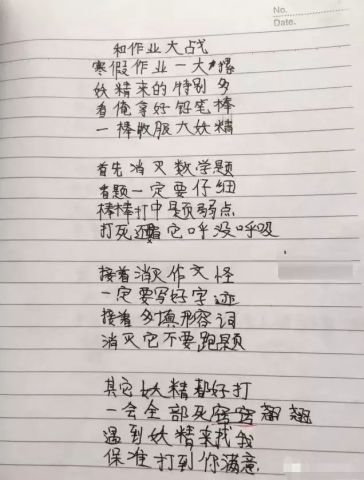 No.
Date.
和作业大战
寒假作业一大摞
妖精来的特别多
看俺拿好铅笔棒
一棒收服大妖精
首先消灭数学题
看题一定要仔细
棒棒打中题弱点
打死还看它呼没呼吸
接着消灭作文怪
一定要写好字迹
接着多填形容词
消灭它不要跑题
其它妖精都好打
一会全部死翘翘
遇到妖精来找我
保准打到你满意